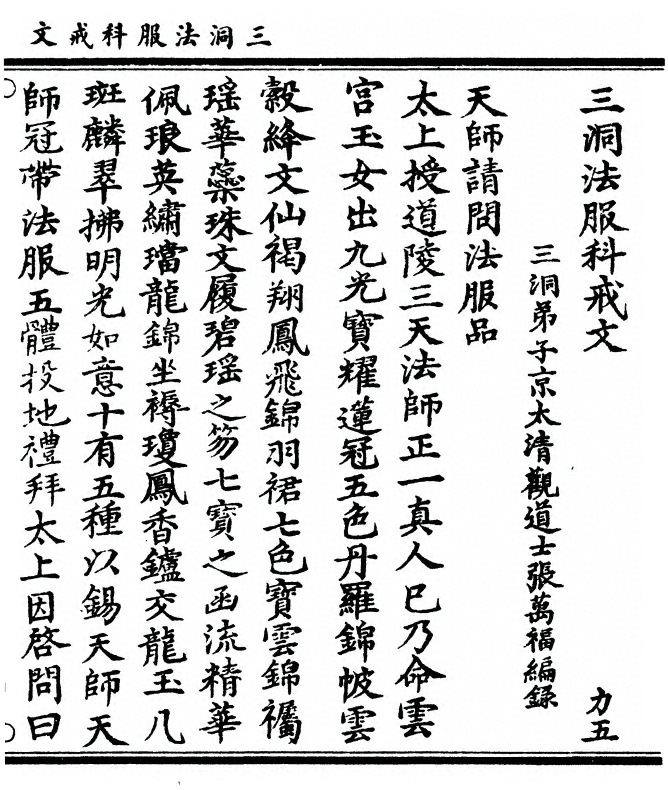 三洞法服科戒文
三洞法服科戒文
力五
三洞弟子京太清觀道士張萬福編録
天師請問法服品
太上授道陵三天法師正一真人已乃命雲
宮玉女出九光寶耀蓮冠五色丹羅錦帔雲
縠絳文仙褐翔鳳飛錦羽裙七色寶雲錦襡
瑶華蘂珠文履碧瑶之笏七寶之函流精華
佩琅英繡璫龍錦坐褥瓊鳳香鑪交龍玉几
斑麟翠拂明光如意十有五種以錫天師天
師冠帶法服五體投地禮拜太上因啓問曰